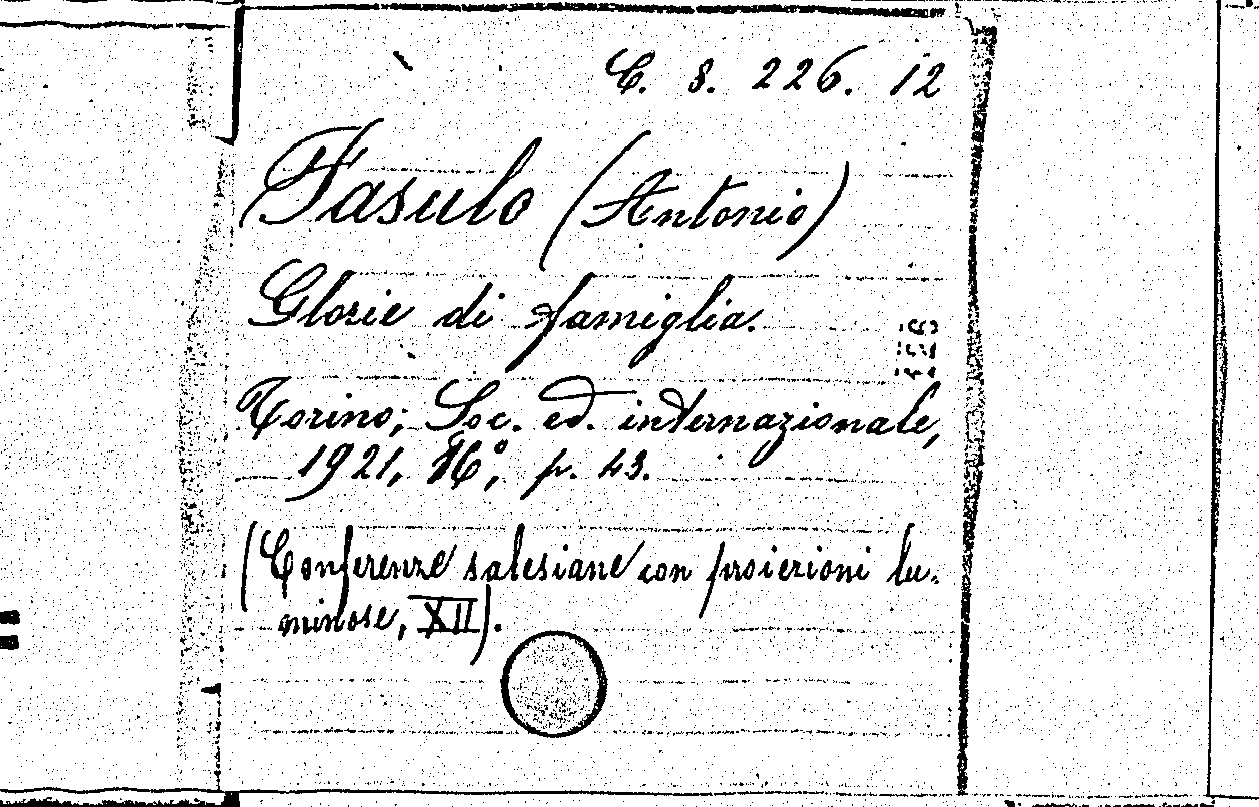 C. S. 226. 12
Fasulo (Antonio)
Glorie di famiglia.
Torino, Soc. ed. internazionale,
1921, 16°, p. 43.
(Conferenze salesiane con proiezioni lu-
minose, XII).